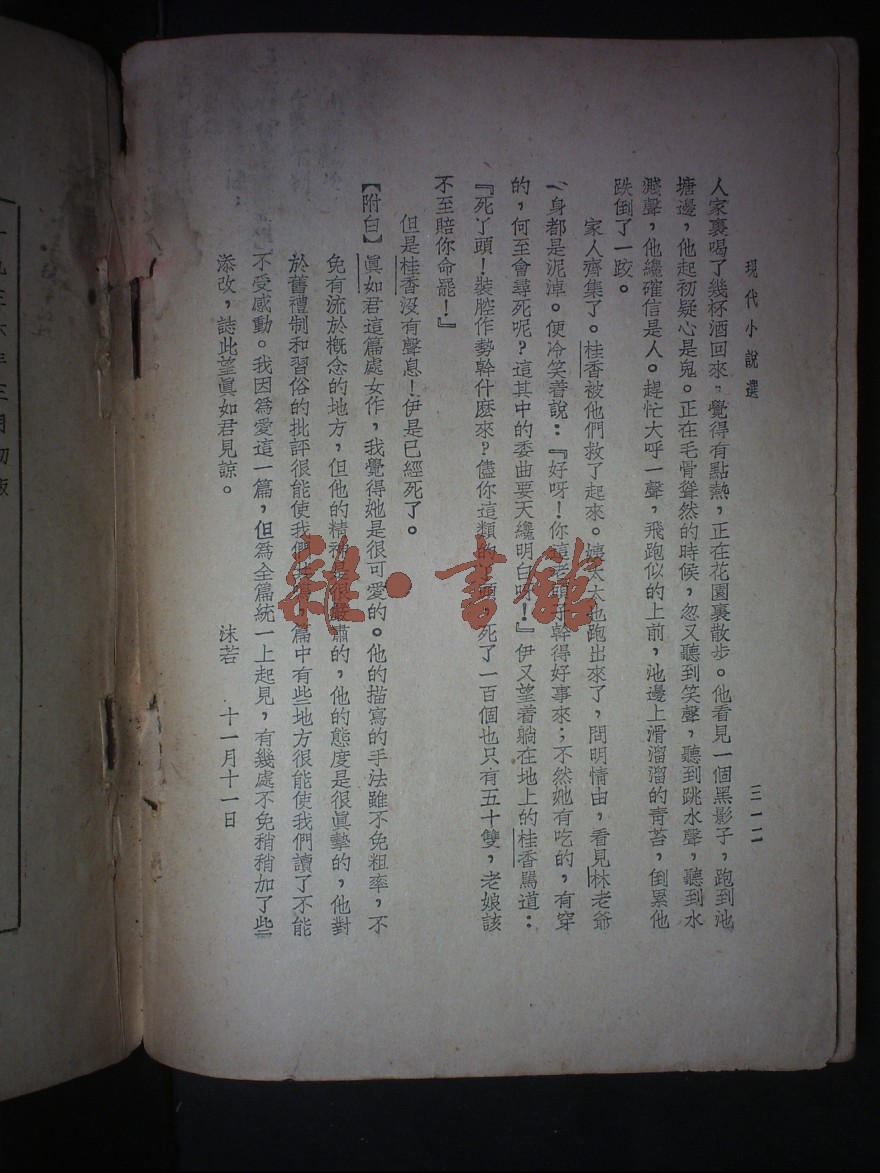 現代小說選
三一一
人家裏喝了幾杯酒回來，覺得有點熱，正在花園裏散步。他看見一個黑影子，跑到池
塘邊，他起初疑心是鬼。正在毛骨聳然的時候，忽又聽到笑聲，聽到跳水聲，聽到水
濺聲，他纔確信是人。趕忙大呼一聲，飛跑似的上前，池邊上滑溜溜的靑苔，倒累他
跌倒了一跤。
家人齊集了。桂香被他們救了起來。姨太太也跑出來了，問明情由，看見林老爺
一身都是泥淖。便冷笑着說：『好呀！你這老頭子幹得好事來；不然她有吃的，有穿
的，何至會尋死呢？這其中的委曲要天纔明白呀！』伊又望着躺在地上的桂香罵道：
『死丫頭！裝腔作勢幹什麽來？儘你這類的丫頭，死了一百個也只有五十雙，老娘該
不至賠你命罷！』
但是桂香沒有聲息！伊是已經死了。
【附白】眞如君這篇處女作，我覺得她是很可愛的。他的描寫的手法雖不免粗率，不
免有流於槪念的地方，但他的精神是很嚴肅的，他的態度是很眞摯的，他對
於舊禮制和習俗的批評很能使我們篇中有些地方很能使我們讀了不能
不受感動。我因爲愛這一篇，但爲全篇統一上起見，有幾處不免稍稍加了些
添改，誌此望眞如君見諒。
沫若 十一月十一日
雜·書館
一九三六年三月初版